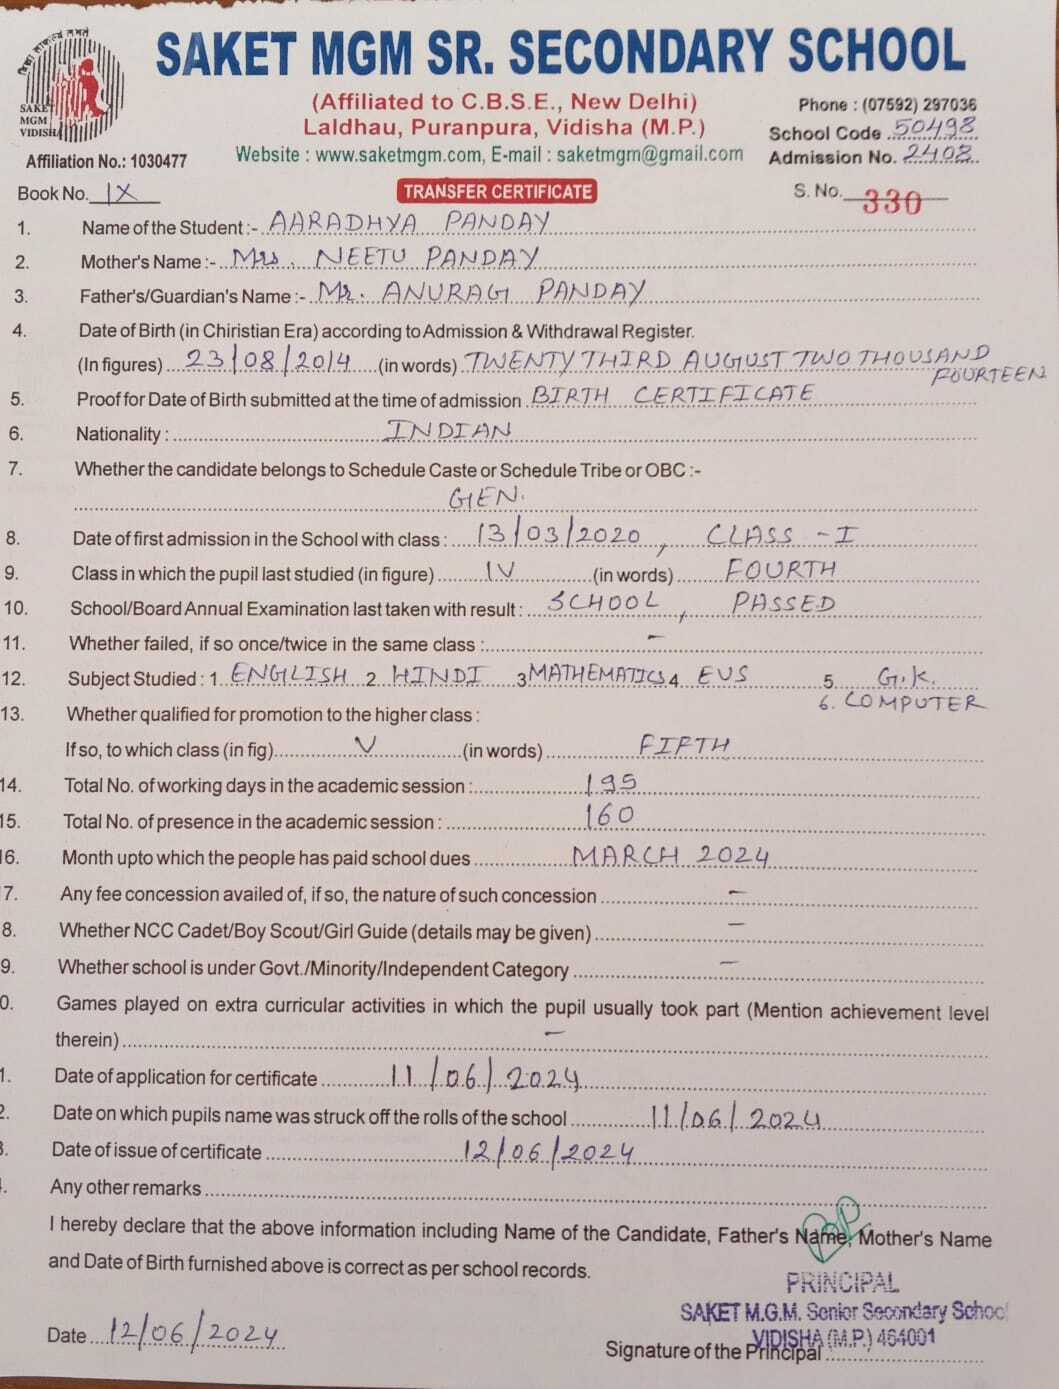 SAKET MGM SR. SECONDARY SCHOOL
SAKET
MGM
VIDISHA
(Affiliated to C.B.S.E., New Delhi)
Laldhau, Puranpura, Vidisha (M.P.)
Website : www.saketmgm.com, E-mail : saketmgm@gmail.com
Phone : (07592) 297036
School Code 50498
Admission No. 2408
Affiliation No.: 1030477
Book No. IX
TRANSFER CERTIFICATE
S. No. 330
1. Name of the Student :- AARADHYA PANDAY
2. Mother's Name :- Mrs. NEETU PANDAY
3. Father's/Guardian's Name :- Mr. ANURAG PANDAY
4. Date of Birth (in Chiristian Era) according to Admission & Withdrawal Register.
(In figures) 23/08/2014 (in words) TWENTY THIRD AUGUST TWO THOUSAND
FOURTEEN
5. Proof for Date of Birth submitted at the time of admission BIRTH CERTIFICATE
6. Nationality : INDIAN
7. Whether the candidate belongs to Schedule Caste or Schedule Tribe or OBC :-
GEN.
8. Date of first admission in the School with class : 13/03/2020, CLASS - I
9. Class in which the pupil last studied (in figure) IV (in words) FOURTH
10. School/Board Annual Examination last taken with result : SCHOOL, PASSED
11. Whether failed, if so once/twice in the same class : -
12. Subject Studied : 1 ENGLISH 2 HINDI 3 MATHEMATICS 4 EVS 5. G.K.
6. COMPUTER
13. Whether qualified for promotion to the higher class :
If so, to which class (in fig) V (in words) FIFTH
14. Total No. of working days in the academic session : 195
15. Total No. of presence in the academic session : 160
16. Month upto which the people has paid school dues MARCH 2024
7. Any fee concession availed of, if so, the nature of such concession -
8. Whether NCC Cadet/Boy Scout/Girl Guide (details may be given) -
9. Whether school is under Govt./Minority/Independent Category -
0. Games played on extra curricular activities in which the pupil usually took part (Mention achievement level
therein) -
1. Date of application for certificate 11/06/2024
2. Date on which pupils name was struck off the rolls of the school 11/06/2024
3. Date of issue of certificate 12/06/2024
Any other remarks
I hereby declare that the above information including Name of the Candidate, Father's Name, Mother's Name
and Date of Birth furnished above is correct as per school records.
PRINCIPAL
SAKET M.G.M. Senior Secondary School
VIDISHA (M.P.) 464001
Date 12/06/2024
Signature of the Principal